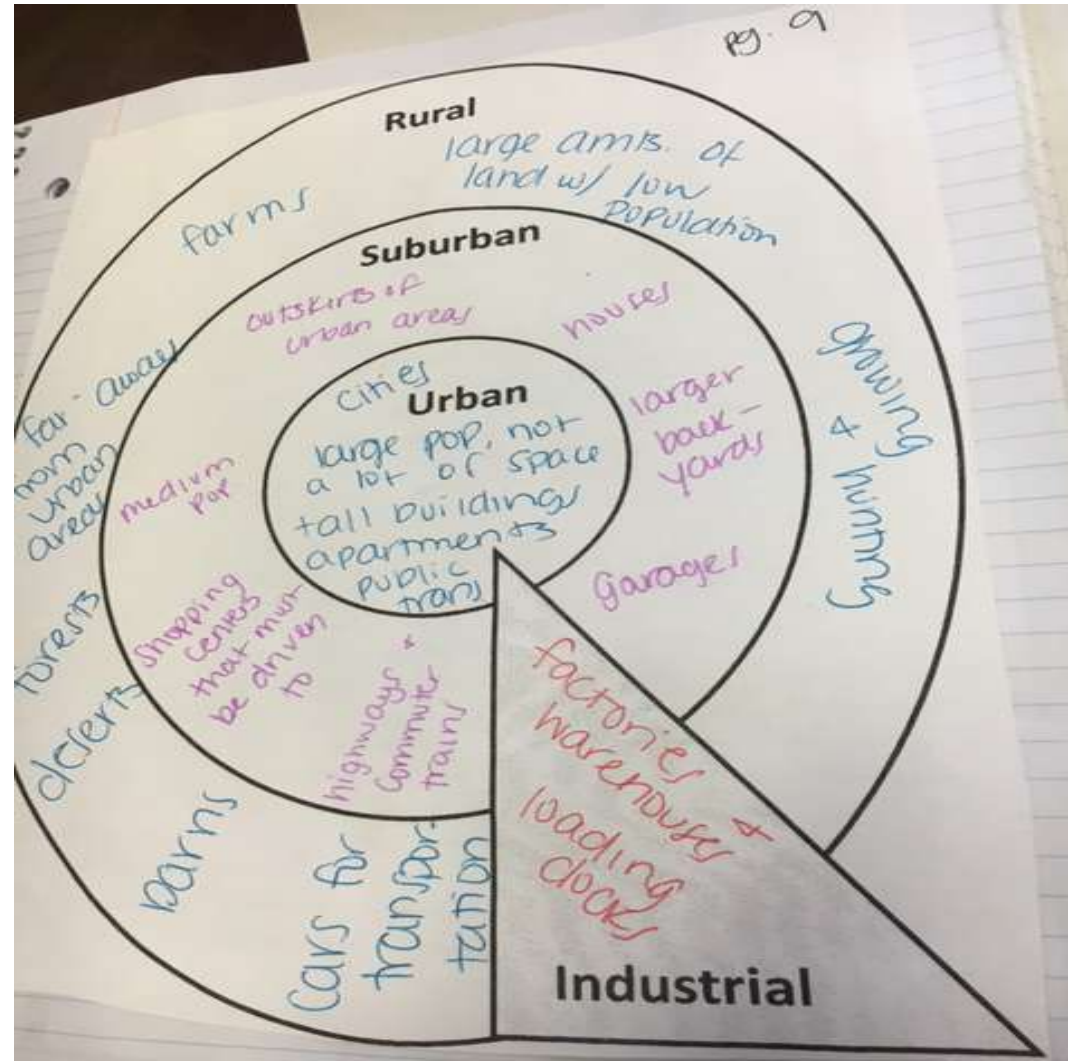 pg. 9
Rural
large amts. of
land w/ low
population
farms
far away
from
urban
areas
forests
deserts
barns
cars for
transpor-
tation
growing
& hunting
Suburban
outskirts of
urban areas
houses
larger
back-
yards
garages
medium
pop
shopping
centers
that must
be driven
to
highways +
commuter
trains
cities
Urban
large pop, not
a lot of space
tall buildings
apartments
public
trans
factories
warehouses &
loading
docks
Industrial